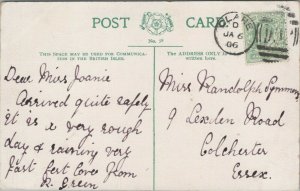 POST CARD.
THIS SPACE MAY BE USED FOR COMMUNICA-
TION IN THE BRITISH ISLES.
No. 7
THE ADDRESS ONLY TO BE
written here.
D
JA 6
06
Dear Miss Joanie
Arrived quite safely
it is a very rough
day & raining very
fast best Love from
R. Green
Miss Randolph Symmons
9 Lexden Road
Colchester
Essex.